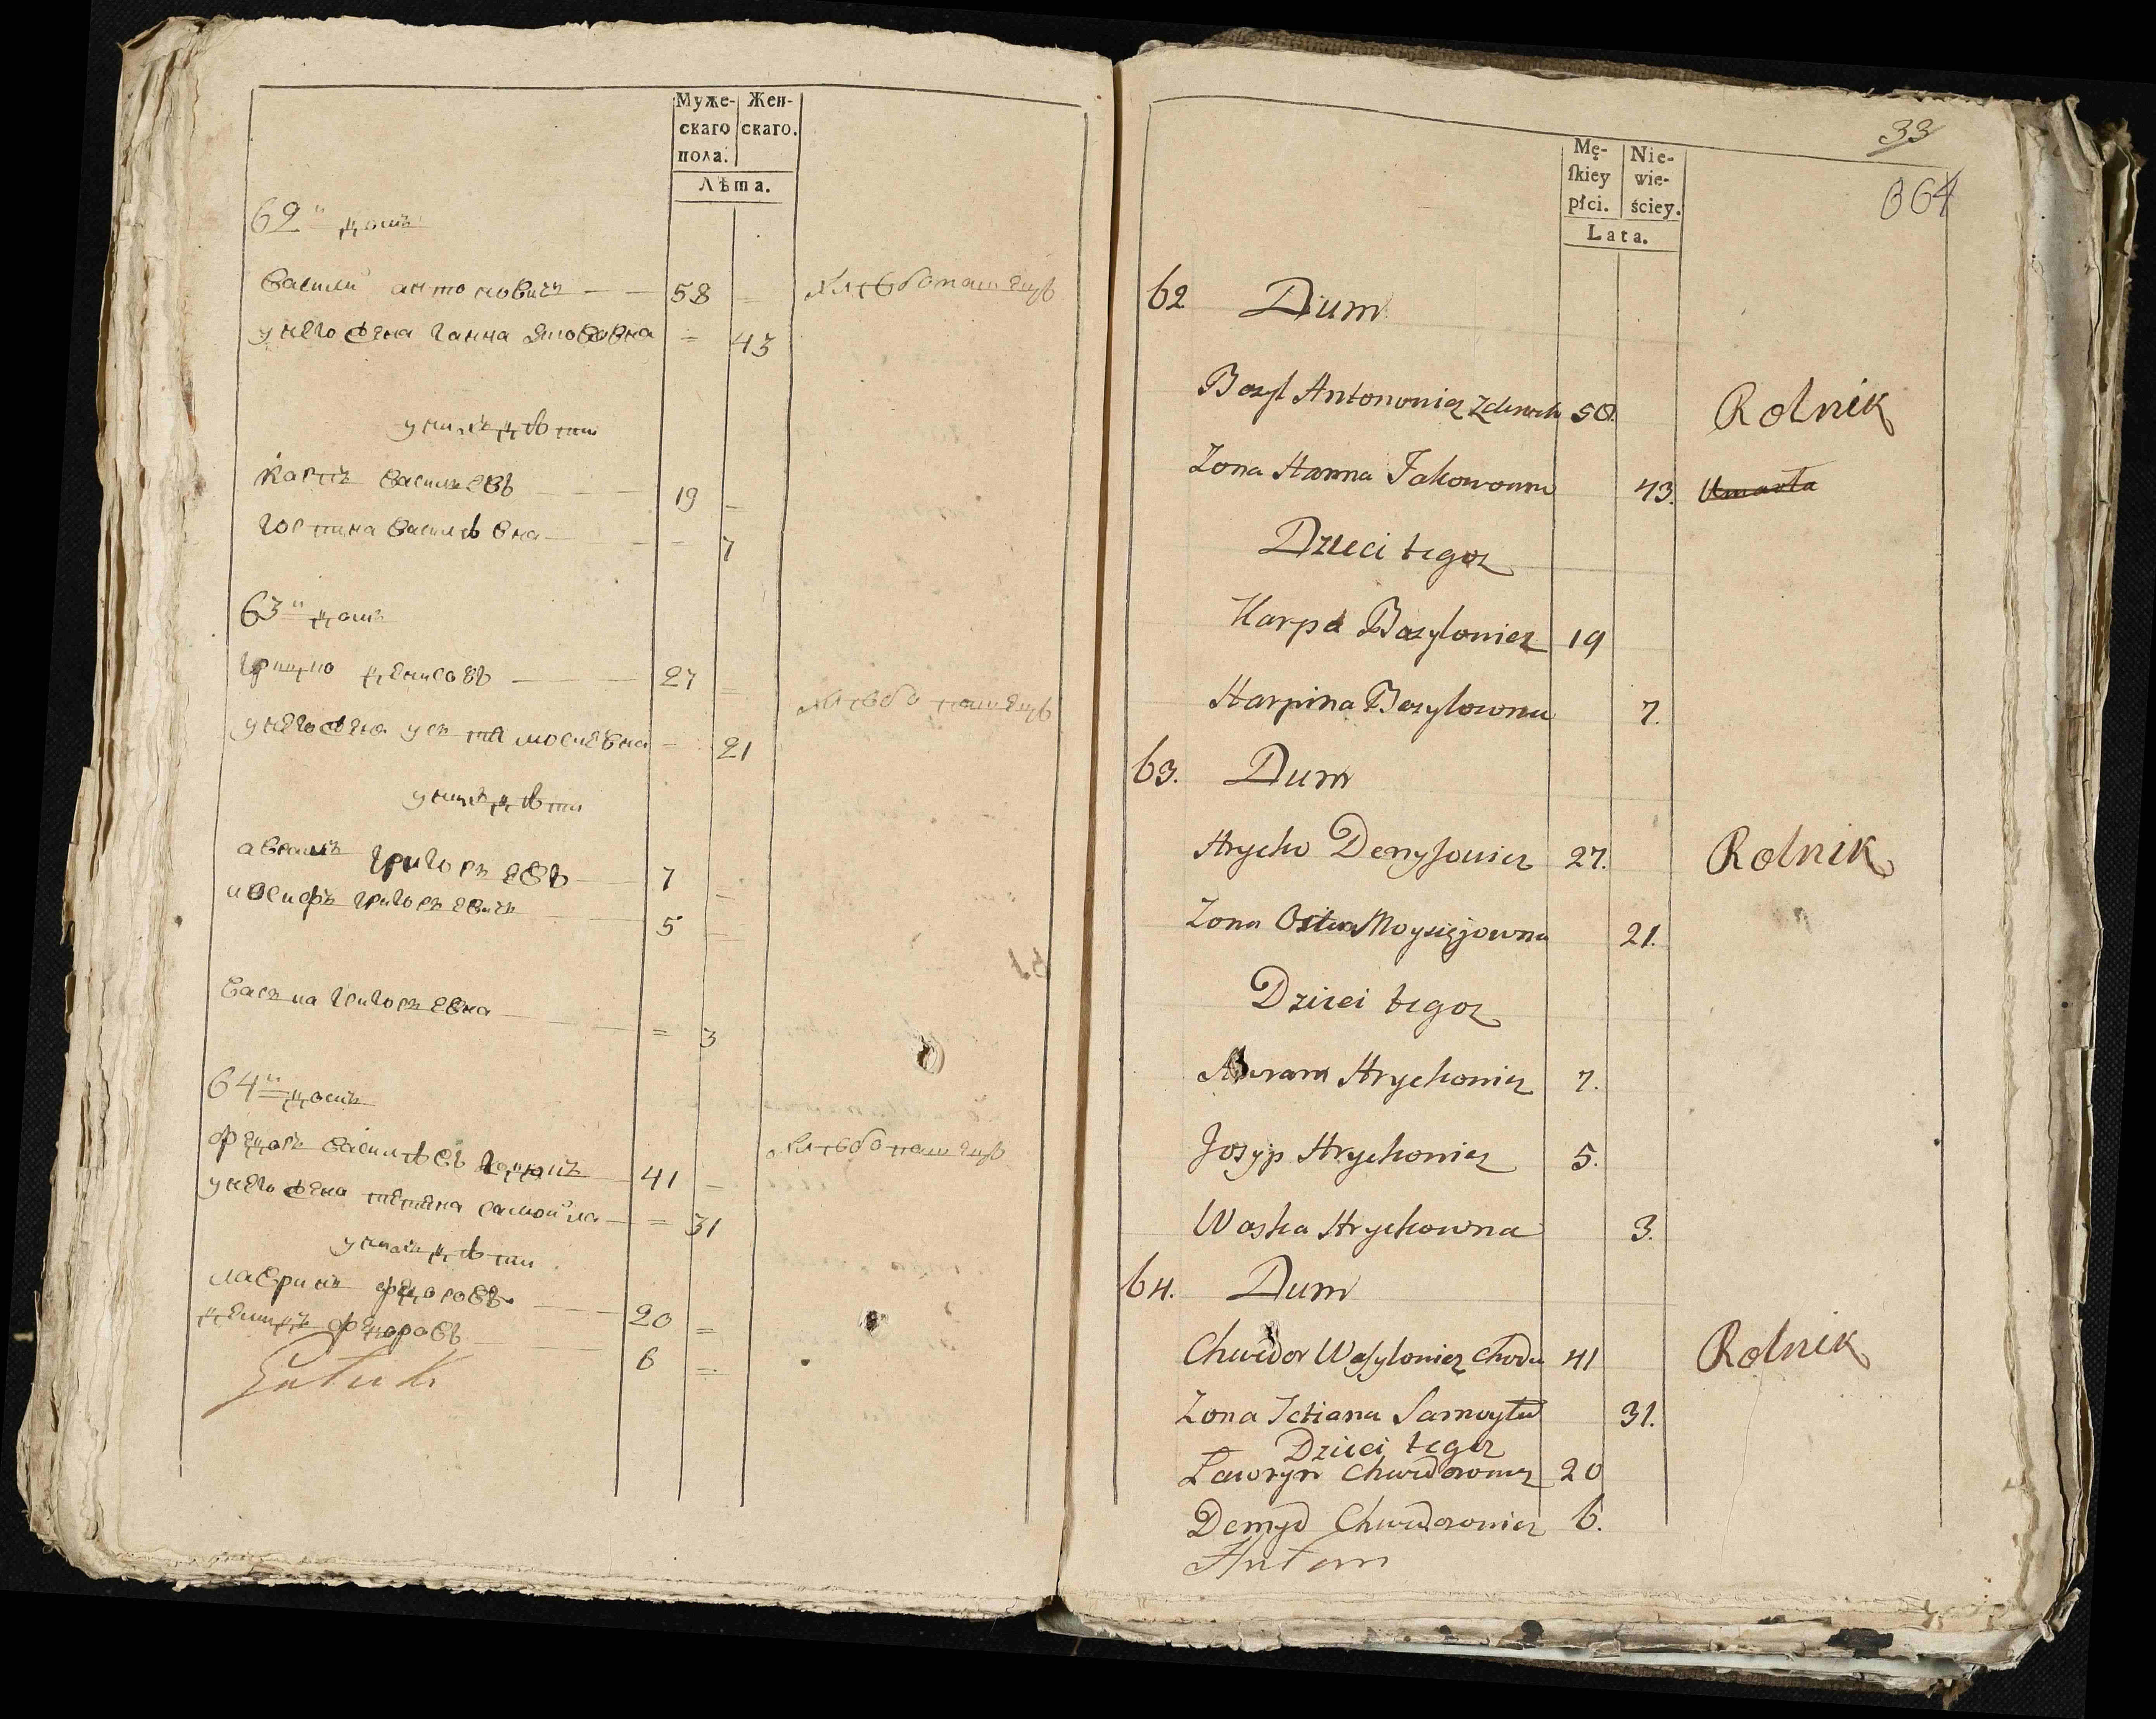 Муже-
скаго
пола.
Жен-
скаго.
Лѣта.
62й домъ
Василий антоновичъ 58 = хлѣбопашецъ
у него жена ганна якововна = 43
у нихъ дѣти
карпъ васильевъ 19 =
васильѣвна = 7
63й домъ
грицко денисовъ 27 = хлѣбопашецъ
у него жена мосиевна = 21
у нихъ дѣти
аврамъ григорьевъ 7 =
иосифъ григорьевичъ 5 =
григорьевна = 3
64й домъ
федоръ васильѣвъ 41 = хлѣбопашецъ
у него жена тетяна самойла = 31
у нихъ дѣти
лавринъ федоровъ 20 =
демидъ федоровъ 6 =
33
364
Mę-
skiey
płci.
Nie-
wie-
ściey.
Lata.
62 Dum
Bazyl Antonowicz 58. Rolnik
Zona Hanna Jakowowna 43. Umarła
Dzieci tegoz
Karpo Bazylowicz 19
Harpina Bazylowna 7.
63. Dum
Hrycko Denysowicz 27. Rolnik
Zona Moysiejowna 21.
Dzieci tegoz
Awram Hryckowicz 7.
Josyp Hryckowicz 5.
Waska Hryckowna 3.
64. Dum
Chwedor Wasylowicz 41 Rolnik
Zona Tetiana Samoyła 31.
Dzieci tegoz
Lawryn Chwedorowicz 20
Demyd Chwedorowicz 6.